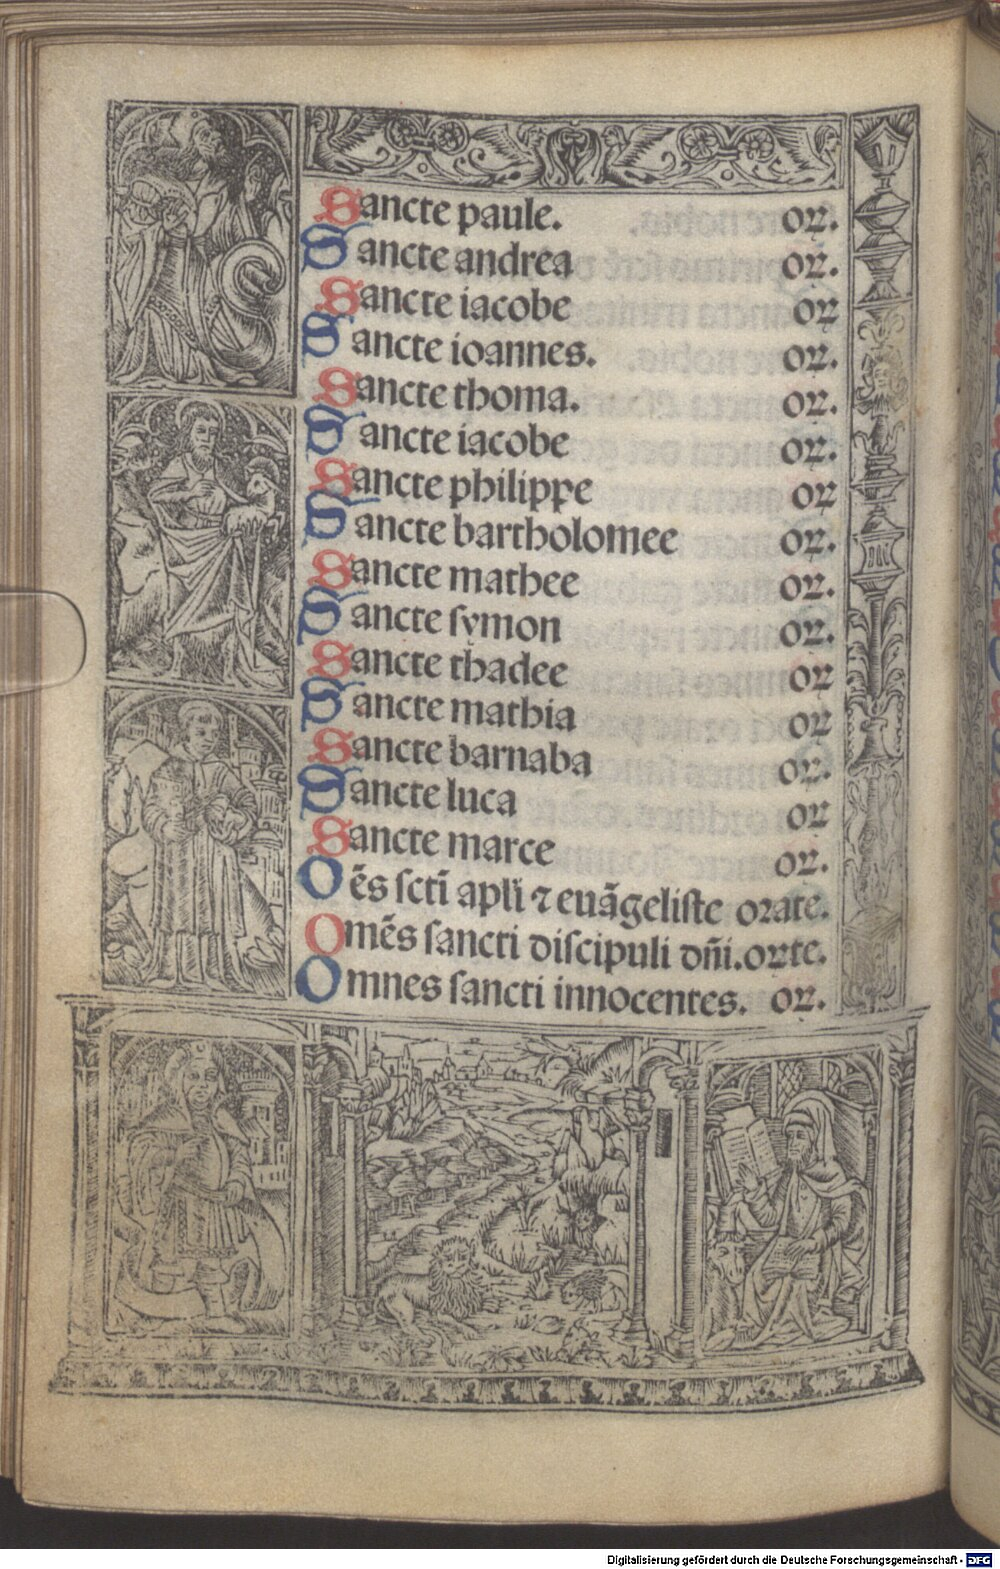 Sancte paule. oꝛ.
Sancte andrea oꝛ.
Sancte iacobe oꝛ
Sancte ioannes. oꝛ.
Sancte thoma. oꝛ.
Sancte iacobe oꝛ.
Sancte philippe oꝛ
Sancte bartholomee oꝛ.
Sancte mathee oꝛ.
Sancte ſymon oꝛ.
Sancte thadee oꝛ
Sancte mathia oꝛ
Sancte barnaba oꝛ.
Sancte luca oꝛ
Sancte marce oꝛ.
Oēs ſcti̅ apli̅ ⁊ euāgeliſte oꝛate.
Omēs sancti diſcipuli dn̄i. oꝛte.
Omnes ſancti innocentes. oꝛ.
Digitalisierung gefördert durch die Deutsche Forschungsgemeinschaft - DFG